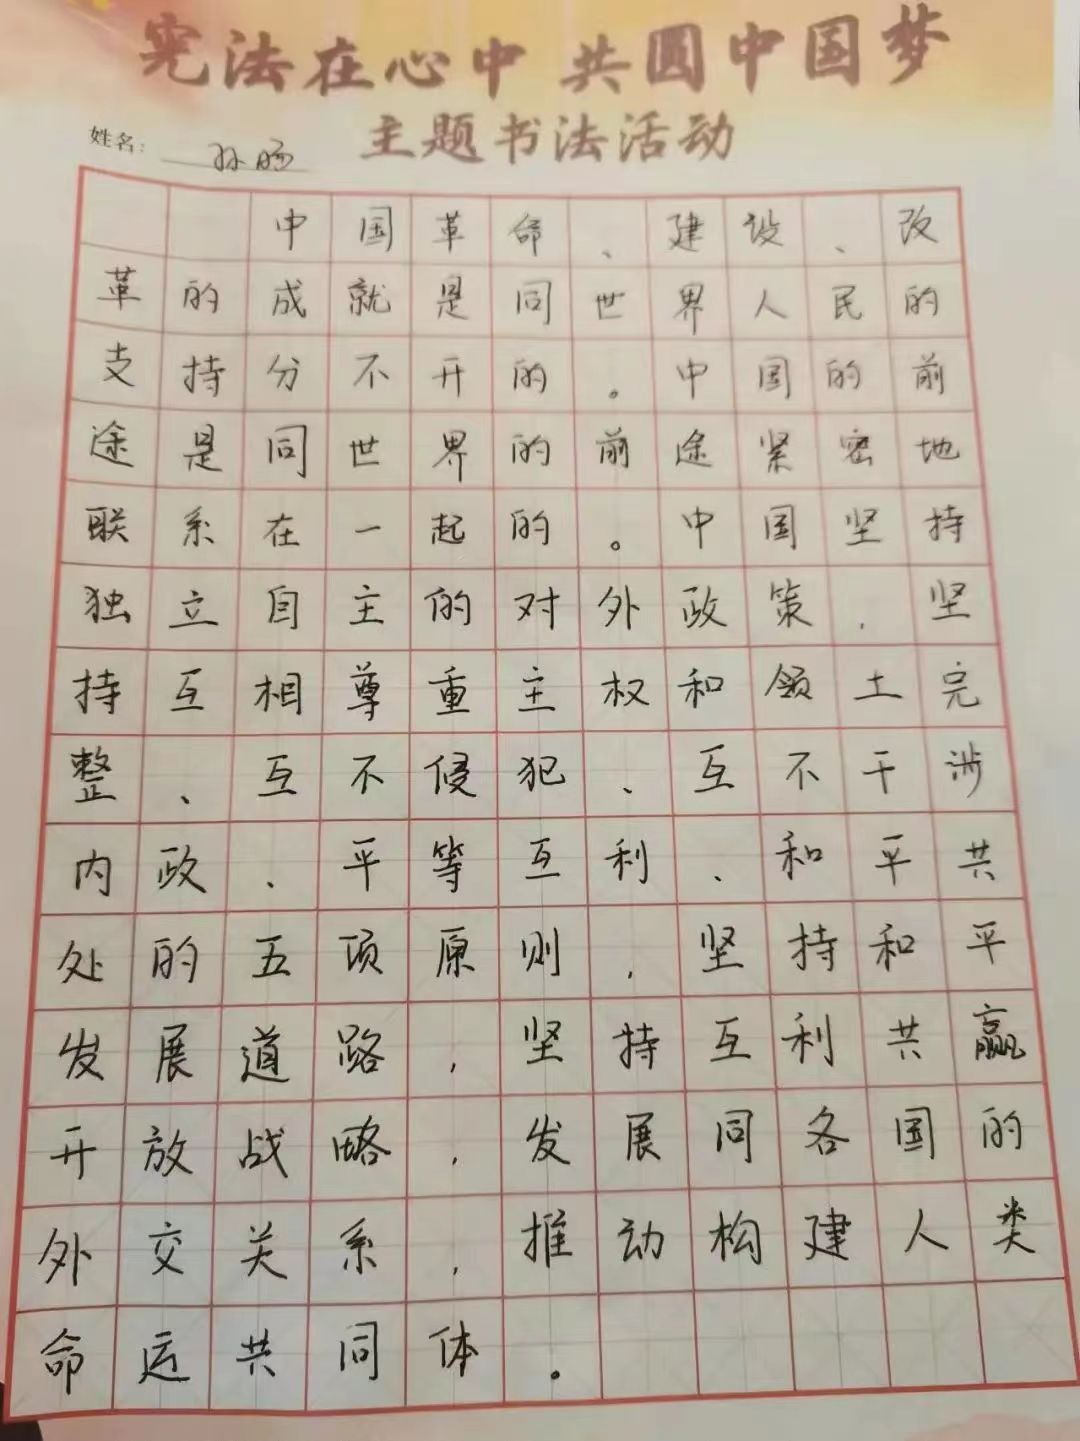 宪法在心中 共圆中国梦
主题书法活动
姓名：孙旸
中国革命、建设、改
革的成就是同世界人民的
支持分不开的。中国的前
途是同世界的前途紧密地
联系在一起的。中国坚持
独立自主的对外政策，坚
持互相尊重主权和领土完
整、互不侵犯、互不干涉
内政、平等互利、和平共
处的五项原则，坚持和平
发展道路，坚持互利共赢
开放战略，发展同各国的
外交关系，推动构建人类
命运共同体。